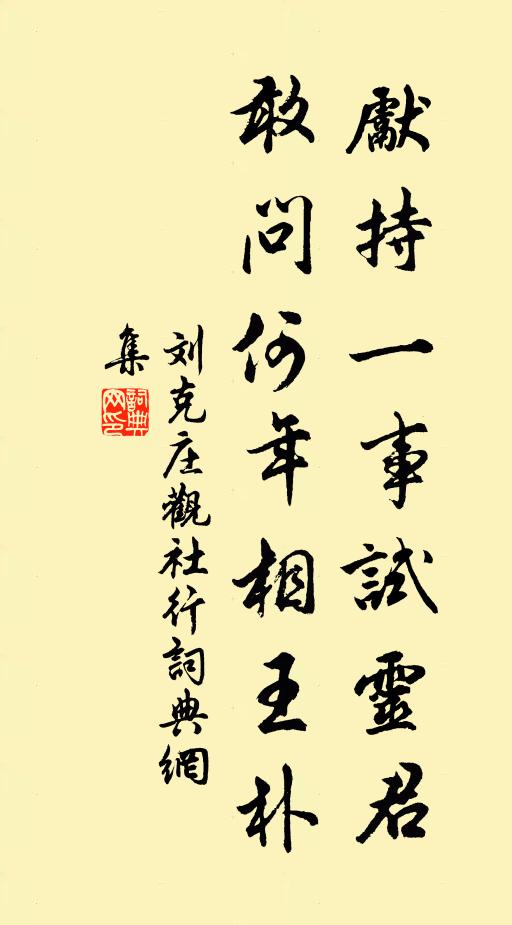 獻持一事試靈君
敢問何年相王朴
刘克庄觀社行詞典網
集
詞典
网印